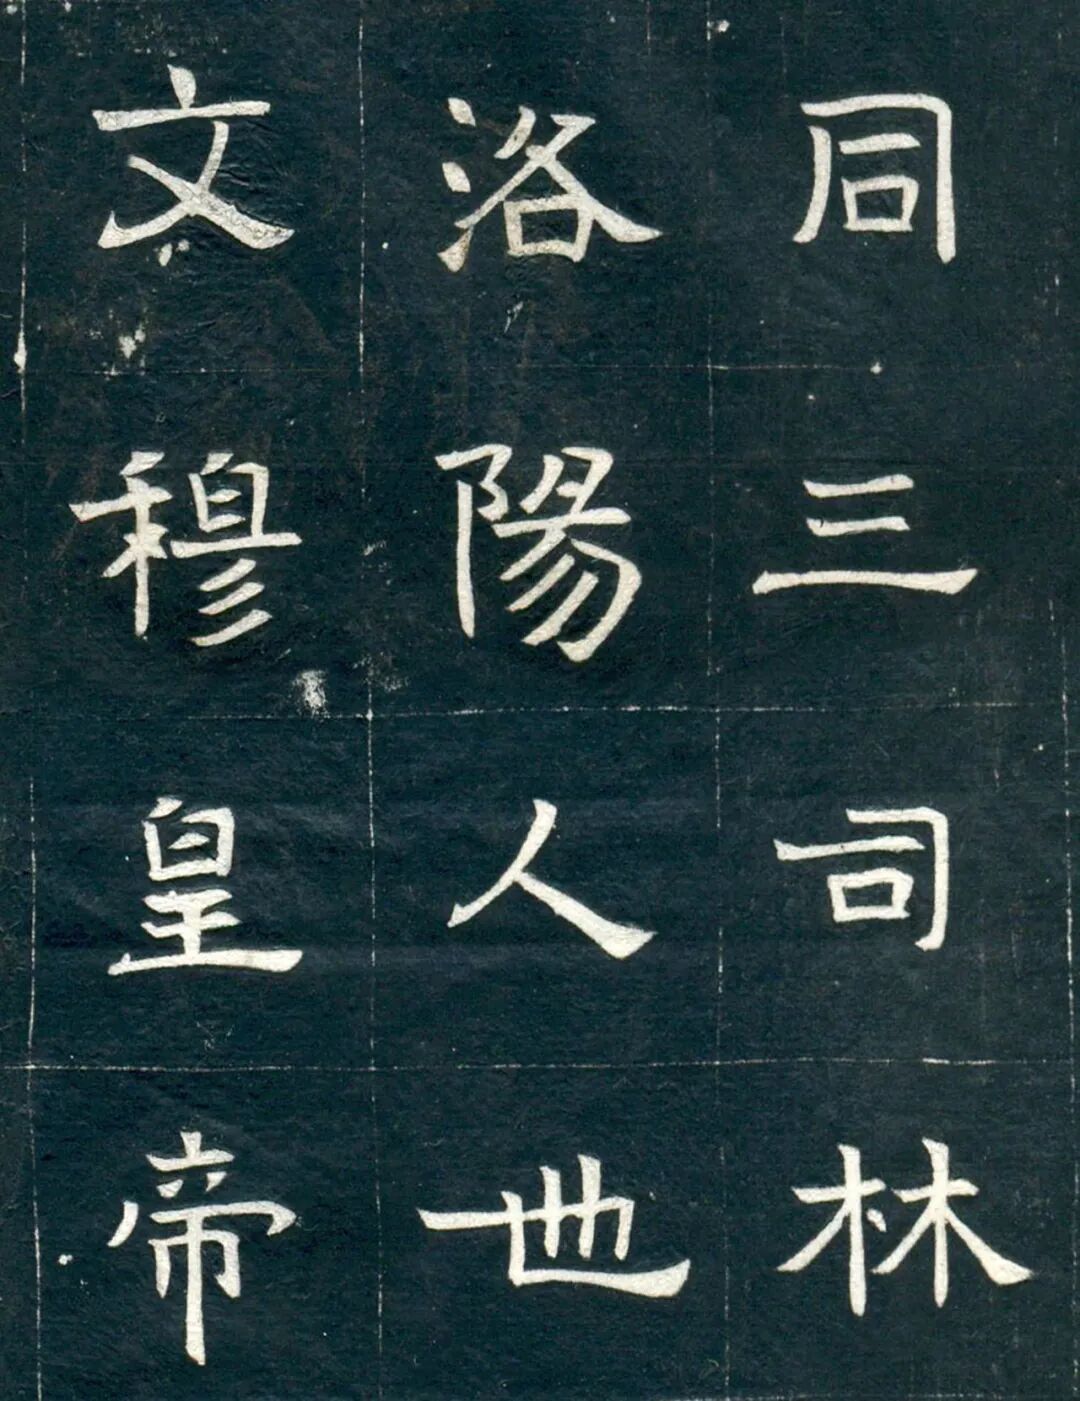 同三司林
洛陽人也
文穆皇帝